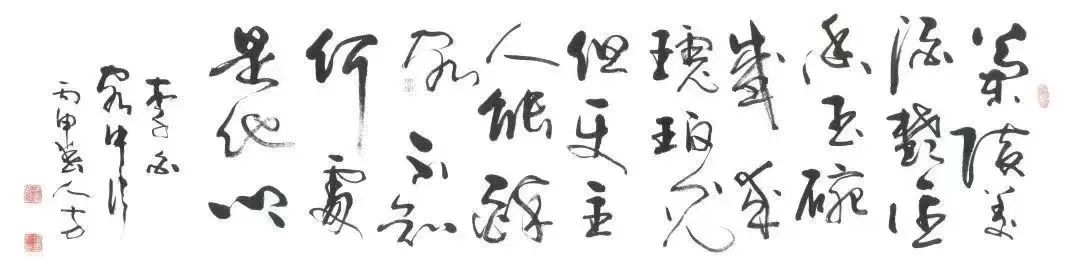 蘭陵美
酒鬱金
香玉碗
盛来
琥珀光
但使主
人能醉
客不知
何處
是他鄉
李白
客中作
丙申